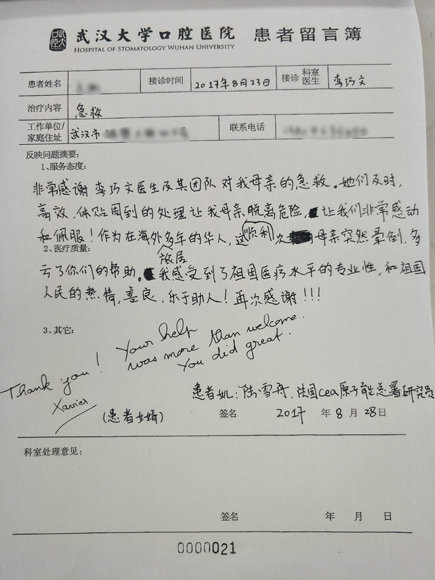 武汉大学口腔医院 患者留言簿
HOSPITAL OF STOMATOLOGY WUHAN UNIVERSITY
患者姓名 接诊时间 2017年8月23日 接诊 科室 医生 李巧文
治疗内容 急救
工作单位/家庭住址 武汉市 联系电话
反映问题摘要:
1、服务态度:
非常感谢 李巧文医生及其团队对我母亲的急救。她们及时,
高效,体贴周到的处理让我母亲脱离危险,让我们非常感动
和佩服!作为在海外旅居多年的华人,这次 母亲突然晕倒,多
2、医疗质量:
亏了你们的帮助,我感受到了祖国医疗水平的专业性,和祖国
人民的热情,善良,乐于助人!再次感谢!!!
3、其它:
Your help
was more than welcome.
You did great.
Thank you!
Xavier
(患者女婿)
患者女儿:陈雪丹,法国cea原子能总署研究员
签名 2017 年 8 月 28 日
科室处理意见:
签名 年 月 日
0000021